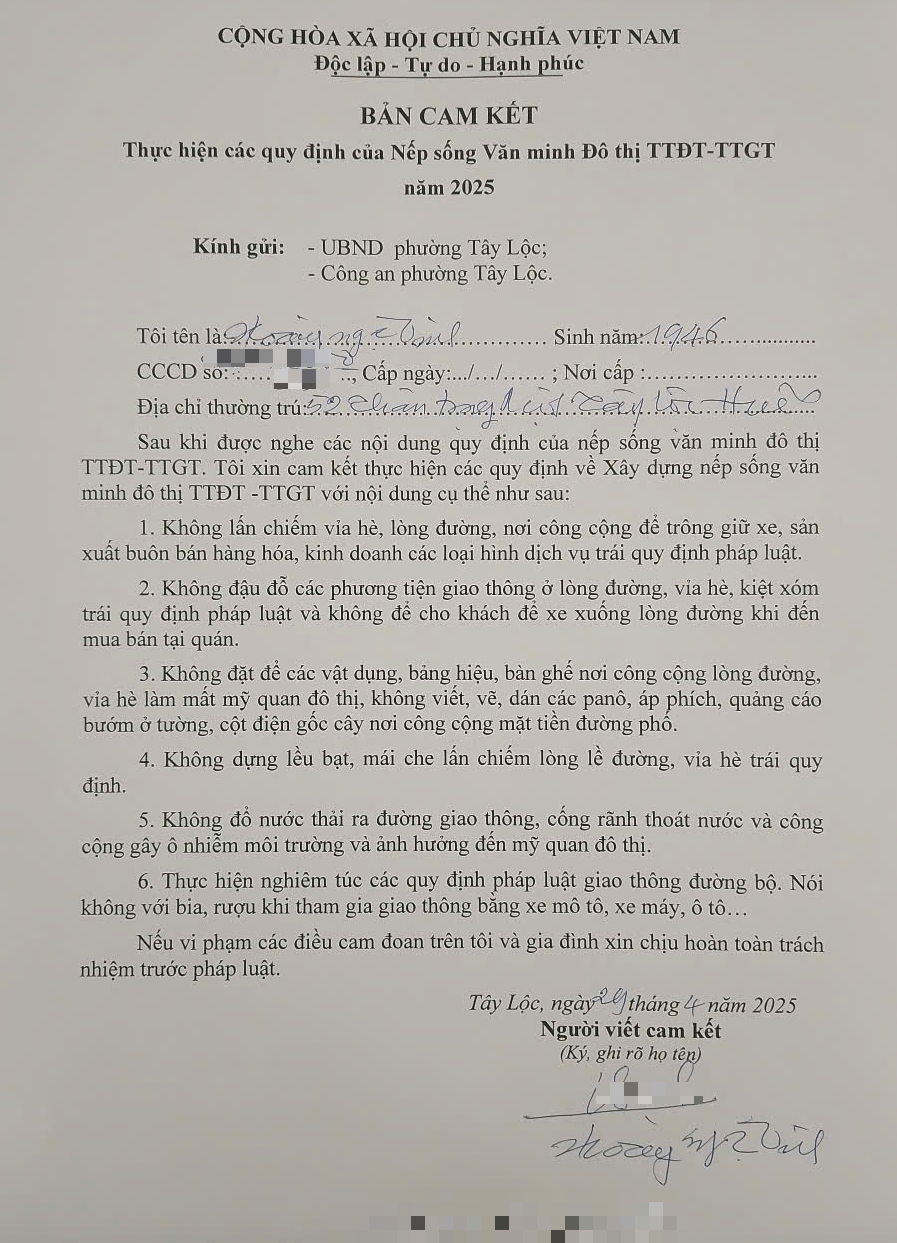 CỘNG HÒA XÃ HỘI CHỦ NGHĨA VIỆT NAM
Độc lập - Tự do - Hạnh phúc
BẢN CAM KẾT
Thực hiện các quy định của Nếp sống Văn minh Đô thị TTĐT-TTGT
năm 2025
Kính gửi: - UBND phường Tây Lộc;
- Công an phường Tây Lộc.
Tôi tên là: Hoàng Sinh năm: 1946
CCCD số: , Cấp ngày:.../.../...... ; Nơi cấp :
Địa chỉ thường trú: 52 Tây Lộc Huế
Sau khi được nghe các nội dung quy định của nếp sống văn minh đô thị
TTĐT-TTGT. Tôi xin cam kết thực hiện các quy định về Xây dựng nếp sống văn
minh đô thị TTĐT -TTGT với nội dung cụ thể như sau:
1. Không lấn chiếm vỉa hè, lòng đường, nơi công cộng để trông giữ xe, sản
xuất buôn bán hàng hóa, kinh doanh các loại hình dịch vụ trái quy định pháp luật.
2. Không đậu đỗ các phương tiện giao thông ở lòng đường, vỉa hè, kiệt xóm
trái quy định pháp luật và không để cho khách để xe xuống lòng đường khi đến
mua bán tại quán.
3. Không đặt để các vật dụng, bảng hiệu, bàn ghế nơi công cộng lòng đường,
vỉa hè làm mất mỹ quan đô thị, không viết, vẽ, dán các panô, áp phích, quảng cáo
bướm ở tường, cột điện gốc cây nơi công cộng mặt tiền đường phố.
4. Không dựng lều bạt, mái che lấn chiếm lòng lề đường, vỉa hè trái quy
định.
5. Không đổ nước thải ra đường giao thông, cống rãnh thoát nước và công
cộng gây ô nhiễm môi trường và ảnh hưởng đến mỹ quan đô thị.
6. Thực hiện nghiêm túc các quy định pháp luật giao thông đường bộ. Nói
không với bia, rượu khi tham gia giao thông bằng xe mô tô, xe máy, ô tô…
Nếu vi phạm các điều cam đoan trên tôi và gia đình xin chịu hoàn toàn trách
nhiệm trước pháp luật.
Tây Lộc, ngày 29 tháng 4 năm 2025
Người viết cam kết
(Ký, ghi rõ họ tên)
Hoàng